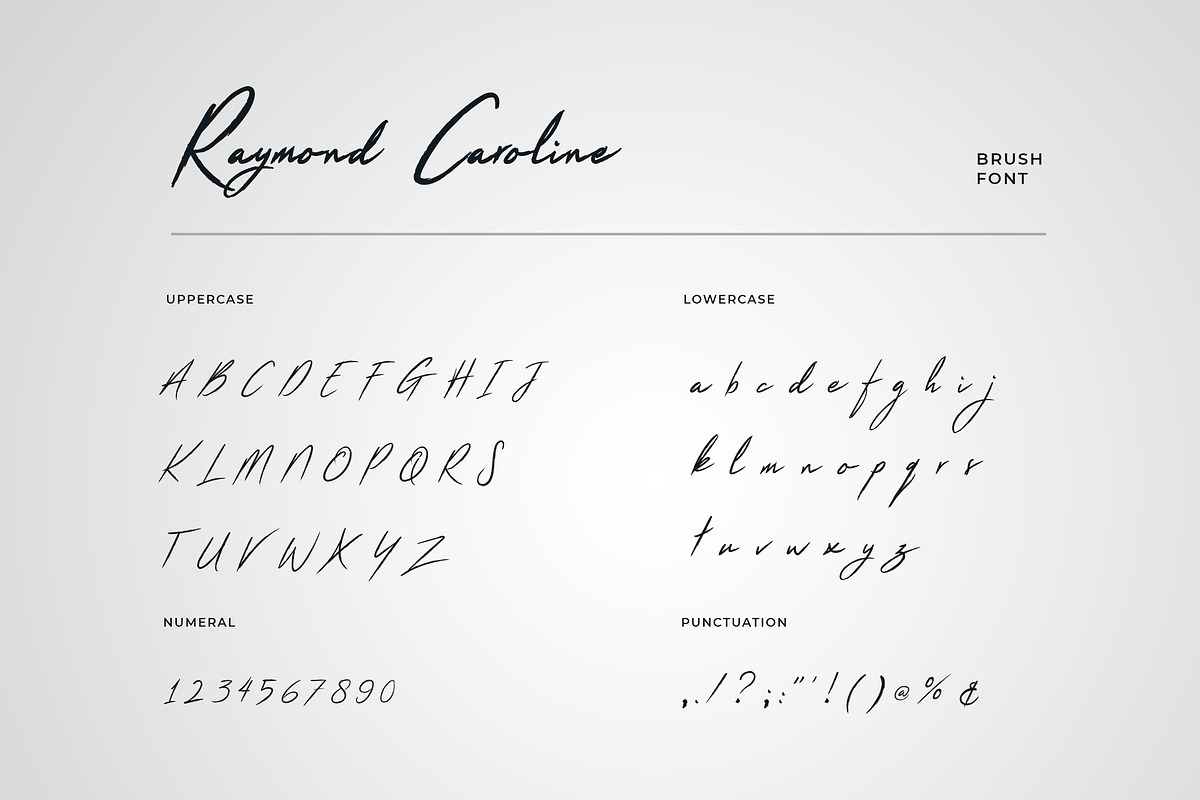 Raymond Caroline
BRUSH
FONT
UPPERCASE
A B C D E F G H I J
K L M N O P Q R S
T U V W X Y Z
LOWERCASE
a b c d e f g h i j
k l m n o p q r s
t u v w x y z
NUMERAL
1 2 3 4 5 6 7 8 9 0
PUNCTUATION
, . / ? ; : " ' ! ( ) @ % &